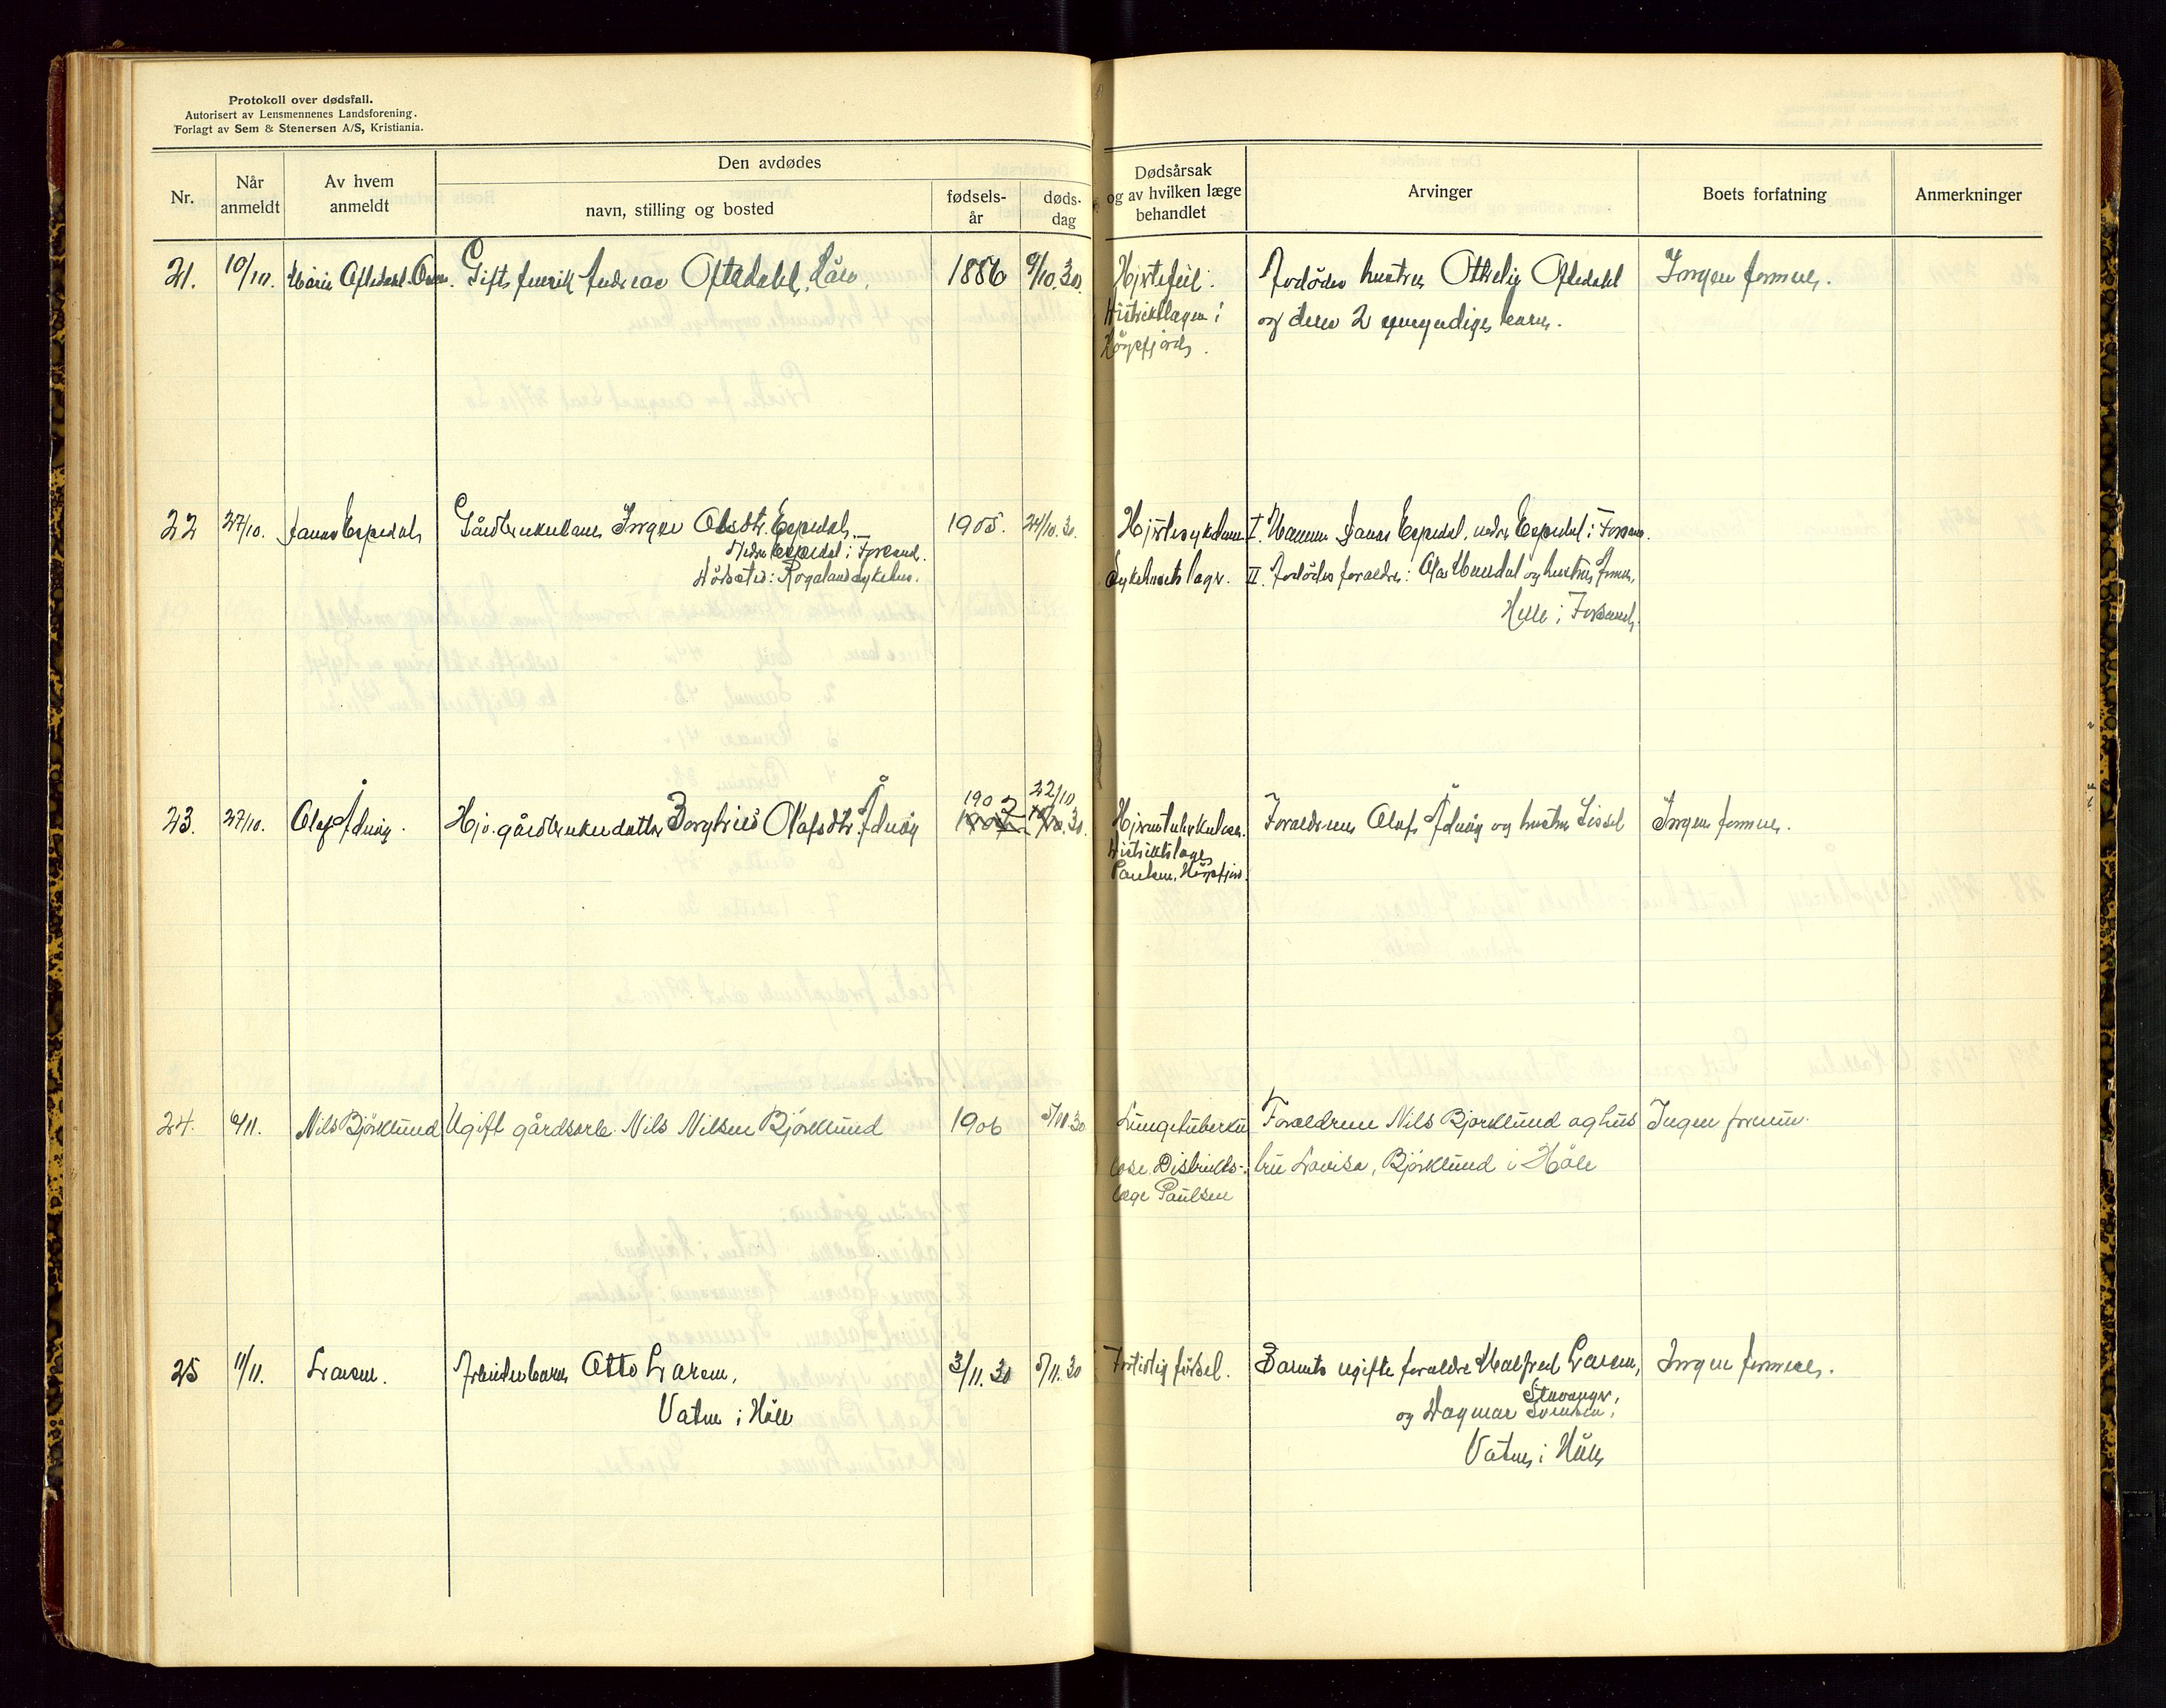 Protokoll over dødsfall.
Autorisert av Lensmennenes Landsforening.
Forlagt av Sem & Stenersen A/S, Kristiania.
Nr.
Når anmeldt
Av hvem anmeldt
Den avdødes
navn, stilling og bosted
fødsels-år
døds-dag
Dødsårsak og av hvilken læge behandlet
Arvinger
Boets forfatning
Anmerkninger
21. 10/10. Marie Oftedahl Gift Andreas Oftedahl, 1886 9/10.30. Hjertefeil. Avdødes hustru Othelie Oftedahl Ingen formue.
Distriktslægen i og deres 2 umyndige barn.
Høgsfjord.
22 27/10. Jonas Espedal Gårdbrukerkone Inger Olsdtr. Espedal, 1905. 24/10.30. Hjertesykdom I. Mannen Jonas Espedal, nedre Espedal i Forsand.
Nedre Espedal i Forsand.
Dødssted: Rogaland sykehus. Sykehusets læger. II. Avdødes foreldre: Ola Mundal og hustru
Helle i Forsand.
23. 27/10. Olaf Ådnøy. Hjv. gårdbrukerdatter Borghild Olafsdtr. Ådnøy 1902 22/10.30. Foreldrene Olaf Ådnøy og hustru Sissel Ingen formue.
Distriktslæge
Paulsen, Høgsfjord.
24. 6/11. Nils Bjørklund Ugift gårdsarb. Nils Nilsen Bjørklund 1906 5/11.30 Lungetuberku Foreldrene Nils Bjørklund og hus Ingen formue.
lose. Distrikts- tru Lovisa, Bjørklund i Høle
læge Paulsen
25 11/11. Larsen. Arbeiderbarn Otto Larsen, 3/11.30 5/11.30 Fortidlig fødsel. Barnets ugifte foreldre Malfred Larsen, Ingen formue.
Stavanger,
Vatne i Høle og Dagmar Svendsen,
Vatne i Høle